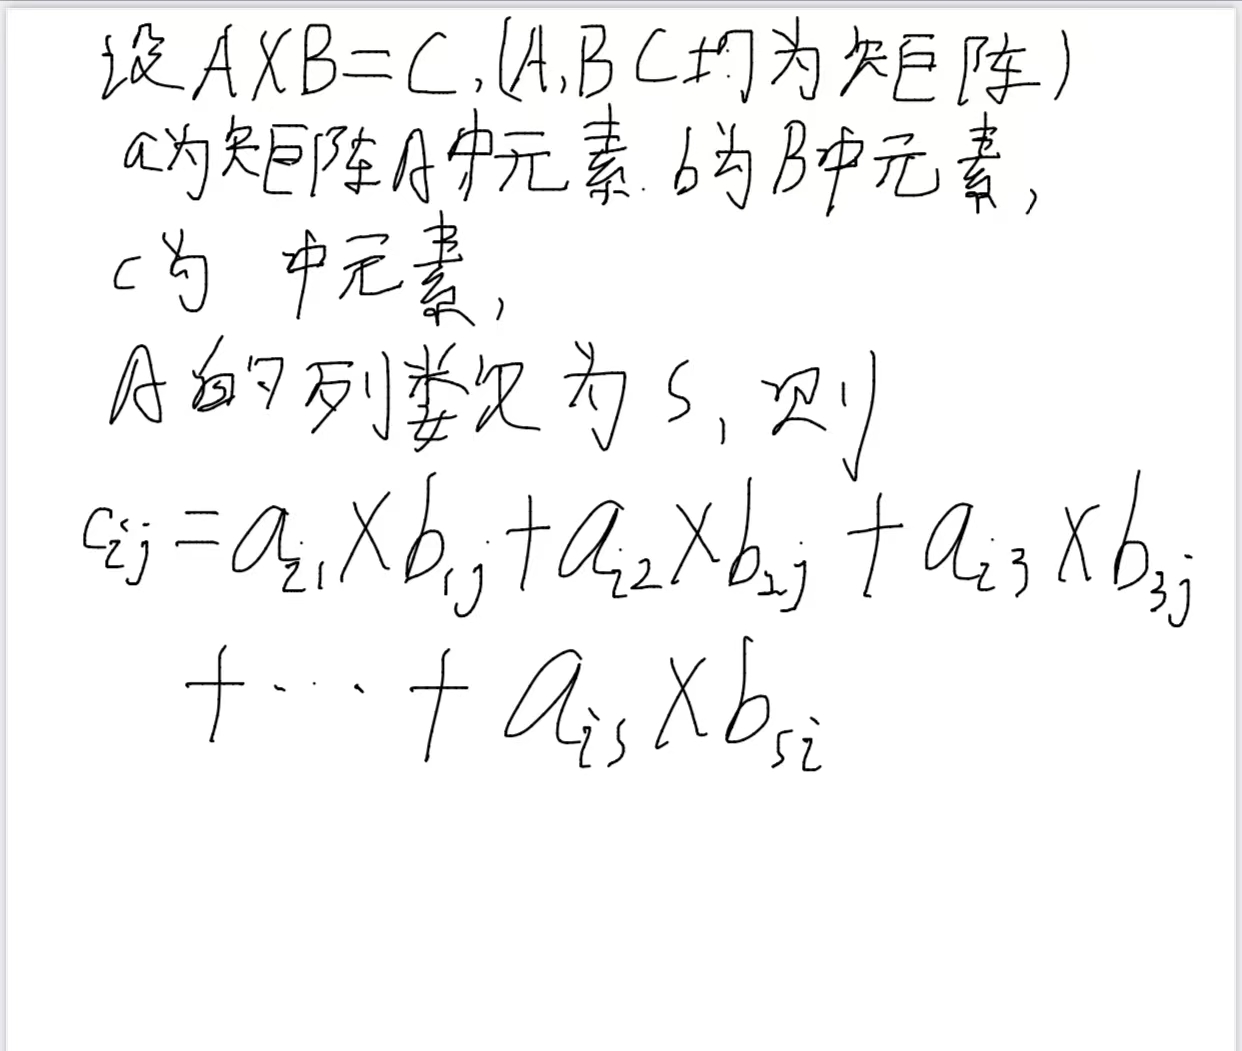 设A×B=C,(A,B C均为矩阵)
a为矩阵A中元素.b为B中元素,
c为 中元素,
A的列数为s,则
cij=ai1×b1j+ai2×b2j+ai3×b3j
+···+ais×bsi